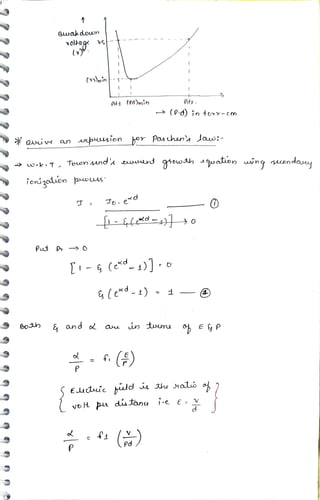 Breakdown
voltage Vs
(V)
(Vs)min
Pd1 (Pd)min Pd2
→ (P.d) in torr-cm
* Derive an expression for Paschen's law:-
→ W.K.T, Townsend's current growth equation using secondary
ionization process
I = I0.e^αd ①
[1 - ξ(e^αd - 1)] → 0
Put Dr → 0
[1 - ξ (e^αd - 1)] = 0
ξ(e^αd - 1) = 1 — ②
Both ξ and α are in terms of E & P
α/P = f1 (E/P)
{ Electric field is the ratio of
volt per distance i.e E = V/d }
α/P = f1 (V/Pd)